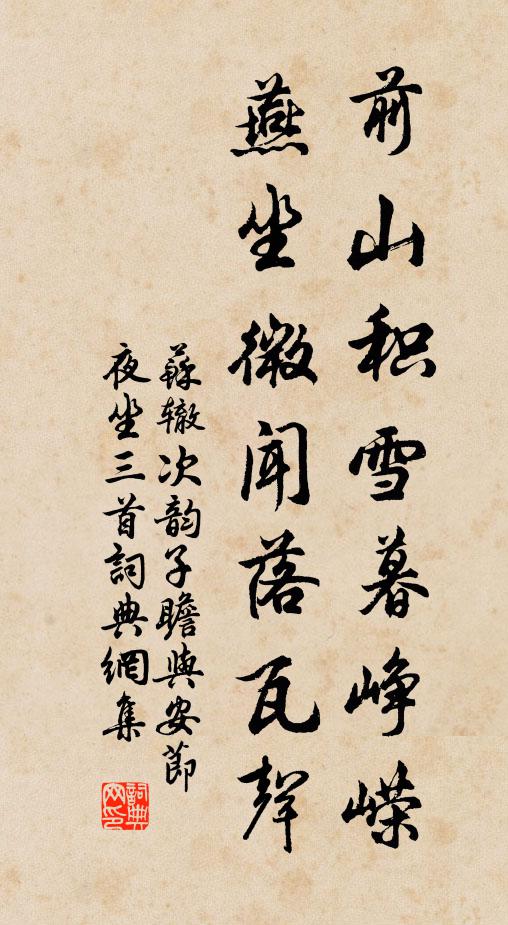 前山积雪暮峥嵘
燕坐微闻落瓦聲
蘇辙次韵子瞻與安節
夜坐三首詞典網集
詞典
网印